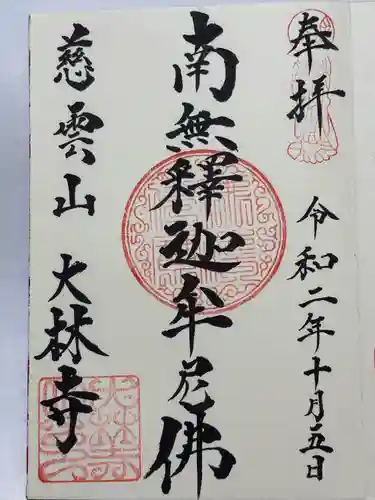 奉拝
令和二年十月五日
南無釋迦牟尼佛
慈雲山 大林寺